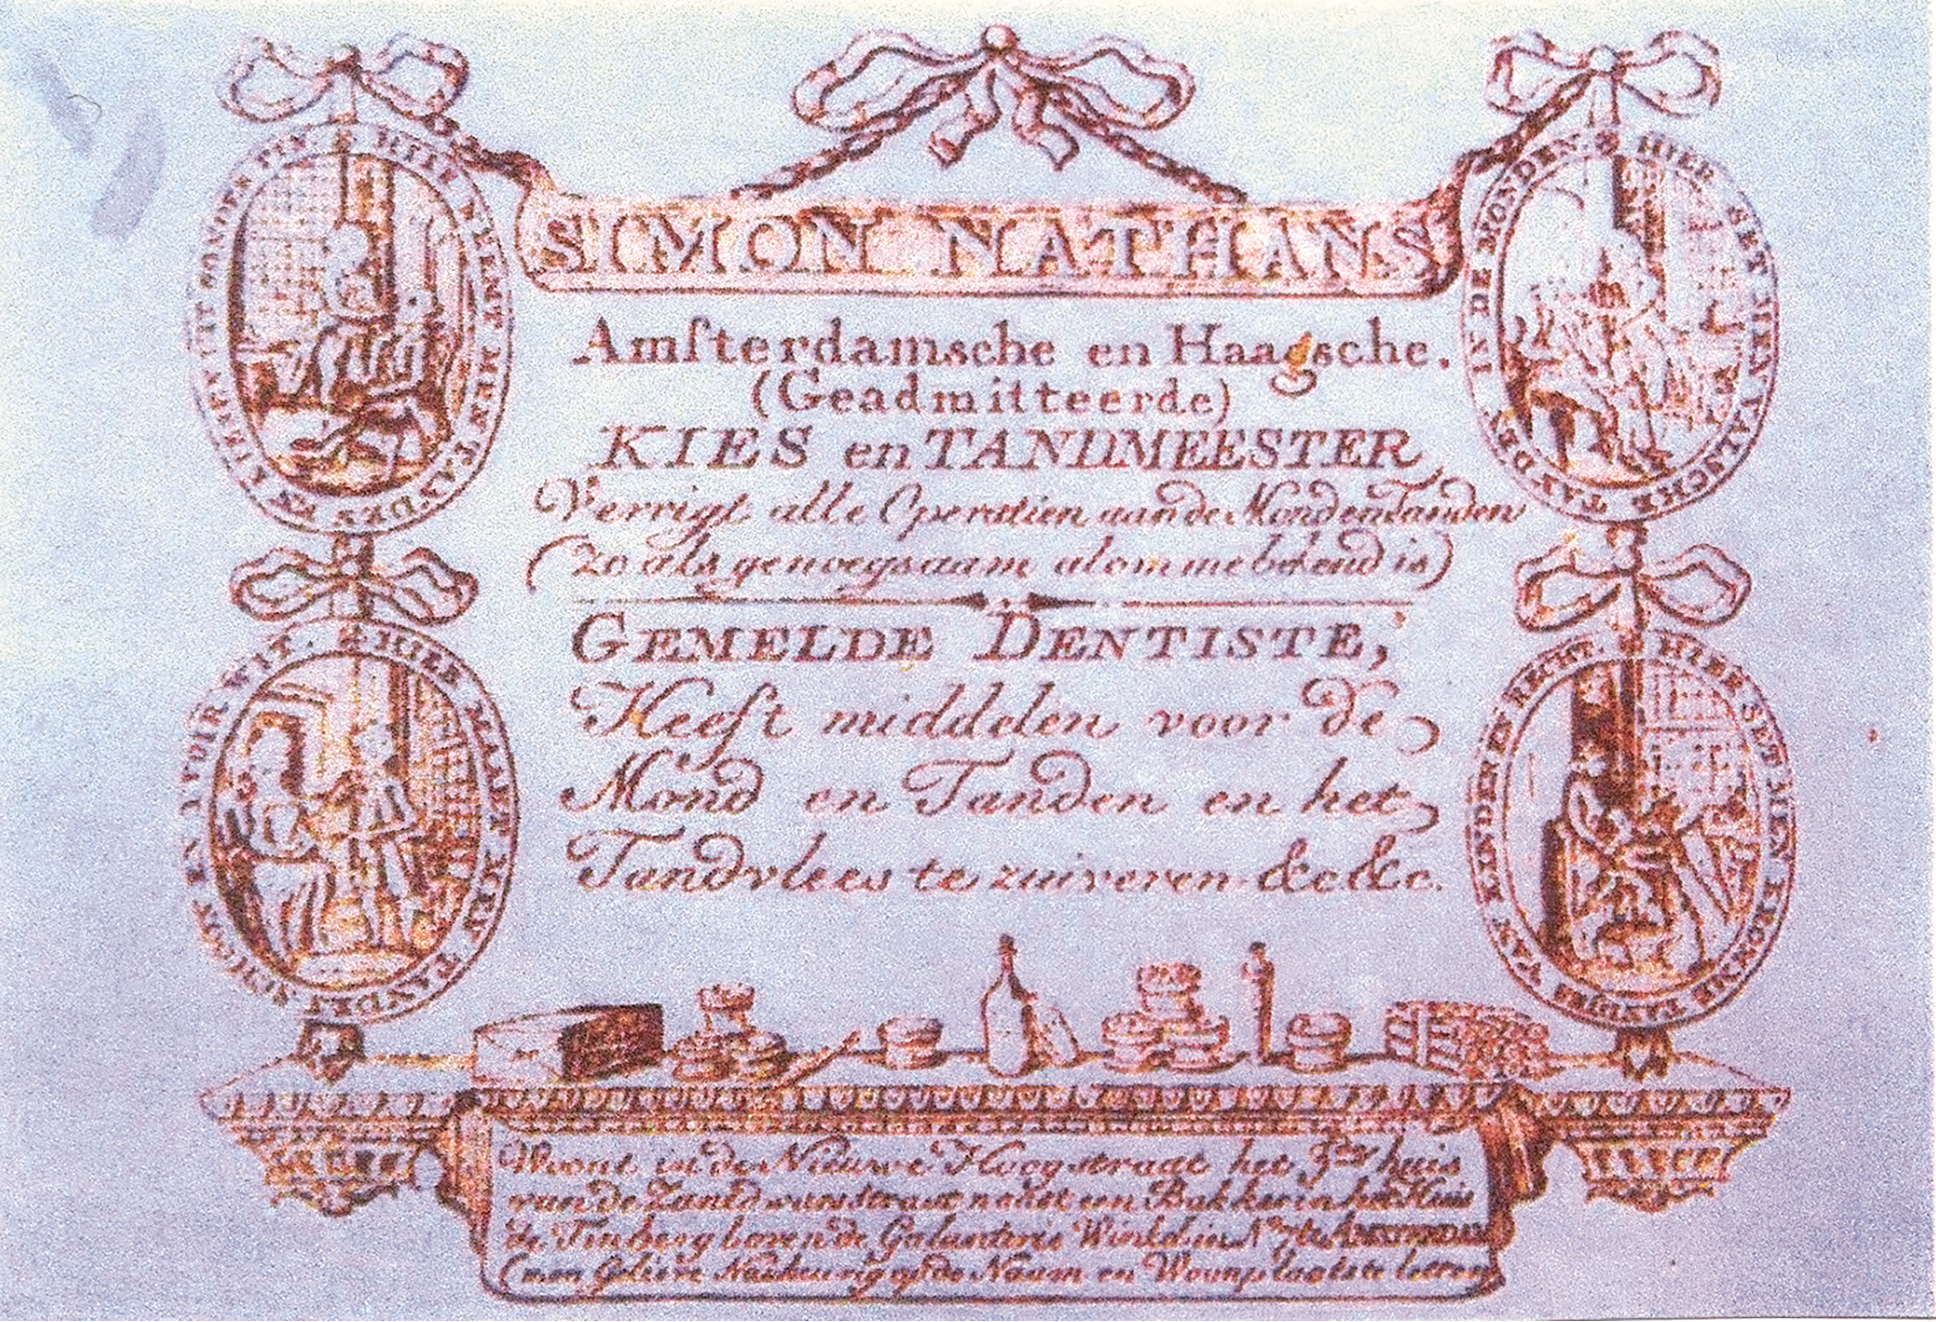 SIMON NATHANS
Amſterdamsche en Haagsche.
(Geadmitteerde)
KIES en TANDMEESTER
Verrigt alle Operatien aan de Mond en Tanden
(zo als genoegsaam alomme bekend is)
GEMELDE DENTISTE,
Heeft middelen voor de
Mond en Tanden en het
Tandvlees te zuiveren &c&c.
HIER TREKT MEN TANDEN
HIER MAAKT MEN TANDEN SCHOON EN VOIR WIT.
HIER SET MEN VALSCHE TANDEN IN DE MONDEN.
HIER SET MEN KROMME TANDEN VAN KINDEREN RECHT.
Woont in de Nieuwe Hoogstraat het 3de huis
van de Zanddwarsstraat naast een Bakker in het Huis
de Tinberg boven de Galanterie Winkel in No te AMSTERDAM
(men Gelieve Naukeurig op de Naam en Woonplaats te letten)